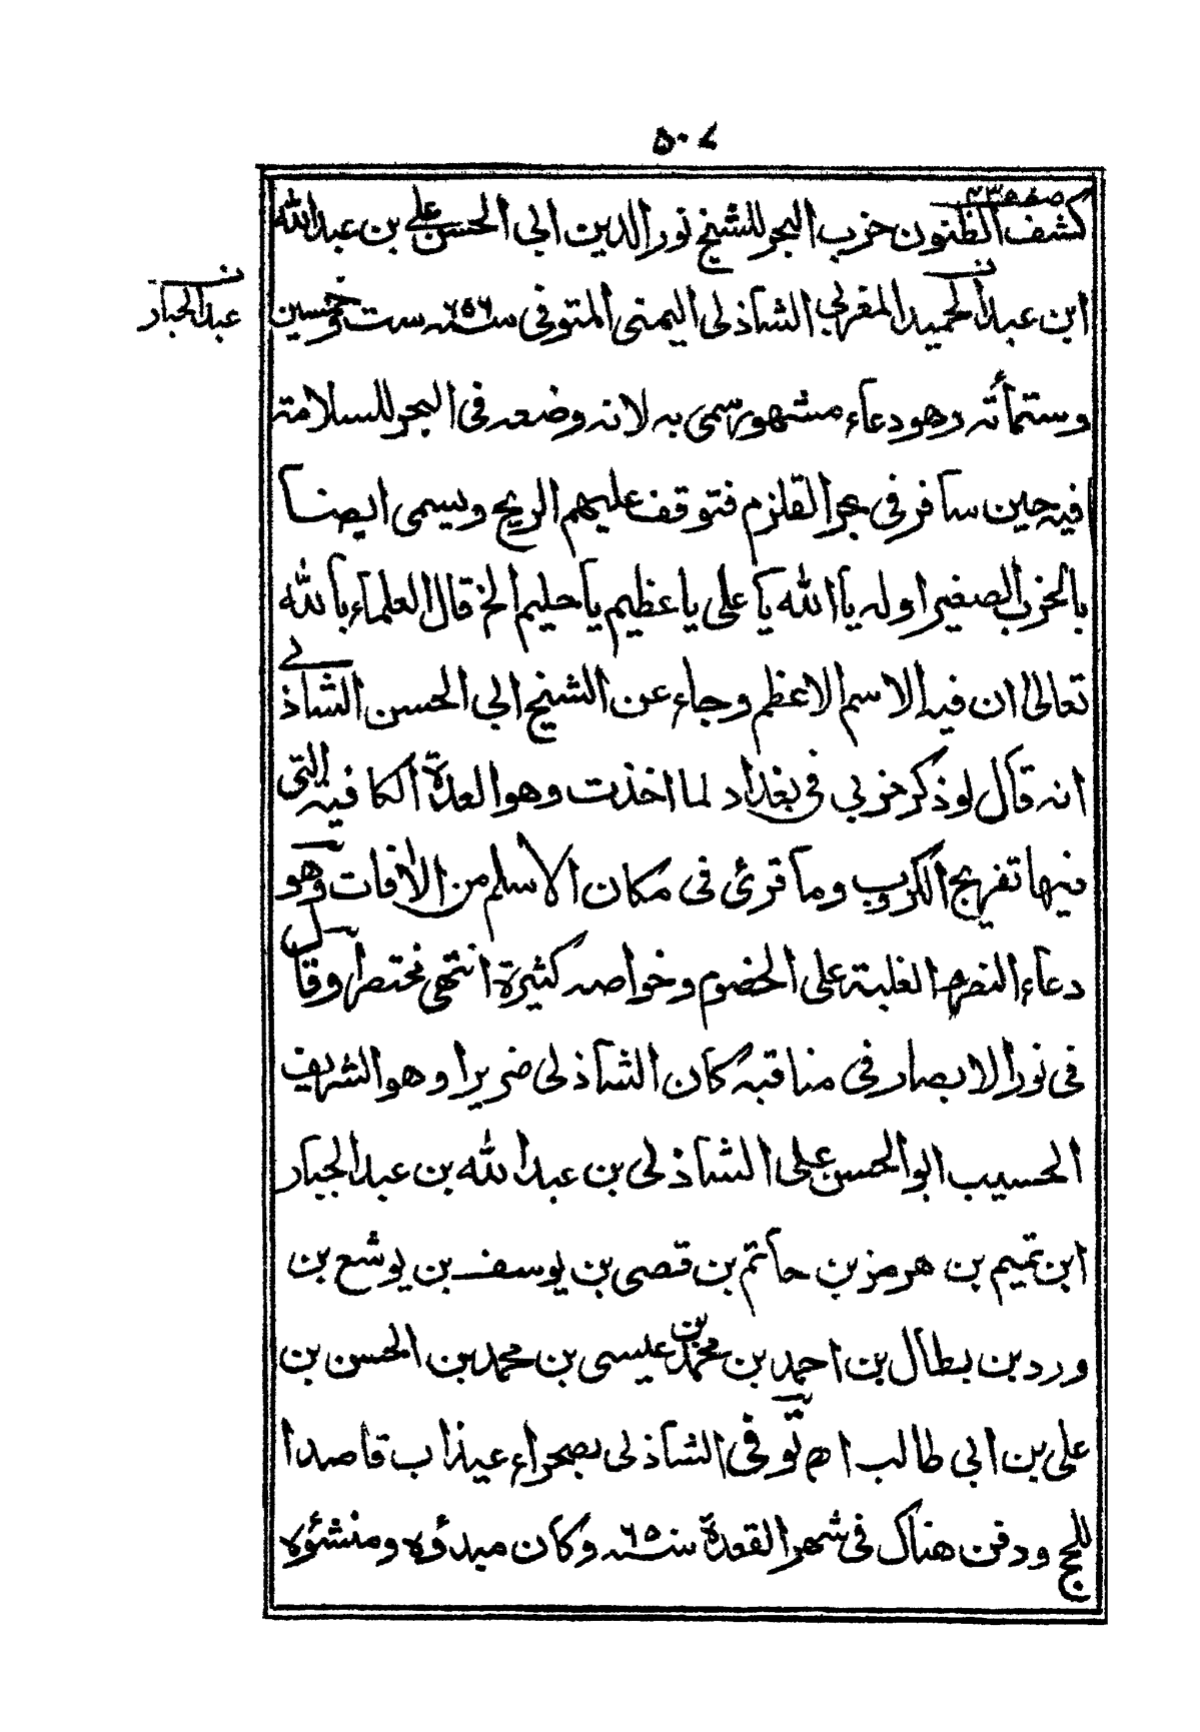 ٥٠٧
صفحه ٤٣٥
كشف الظنون حزب البحر للشيخ نور الدين ابي الحسن علي بن عبد الله
ابن عبد الحميد المغربي الشاذلي اليمني المتوفى سنة ٦٥٦ ست وخمسين
ن
عبد الجبار
وستمأته وهو دعاء مشهور سمى به لانه وضعه فى البحر للسلامة
فيه حين سافر فى بحر القلزم فتوقف عليهم الريح ويسمى ايضا
بالحزب الصغير اوله يا الله يا على يا عظيم يا حليم الخ قال العلماء بالله
تعالى ان فيه الاسم الاعظم وجاء عن الشيخ ابي الحسن الشاذلي
انه قال لو ذكر حزبي فى بغداد لما اخذت وهو العدة الكافية التى
فيها تفريج الكروب وما قرئ فى مكان الا سلم من الافات وهو
دعاء النصر الغلبة على الخصوم وخواصه كثيرة انتهى مختصرا وقال
فى نور الابصار فى مناقبه كان الشاذلى ضريرا وهو الشريف
الحسيب ابو الحسن على الشاذلى بن عبد الله بن عبد الجبار
ابن تميم بن هرمز بن حاتم بن قصى بن يوسف بن يوشع بن
ورد بن بطال بن احمد بن محمد بن عيسى بن محمد بن الحسن بن
على بن ابي طالب اه توفى الشاذلى بصحراء عيذاب قاصدا
للحج ودفن هناك فى شهر القعدة سنه ٦٥ وكان مبدؤه ومنشؤه